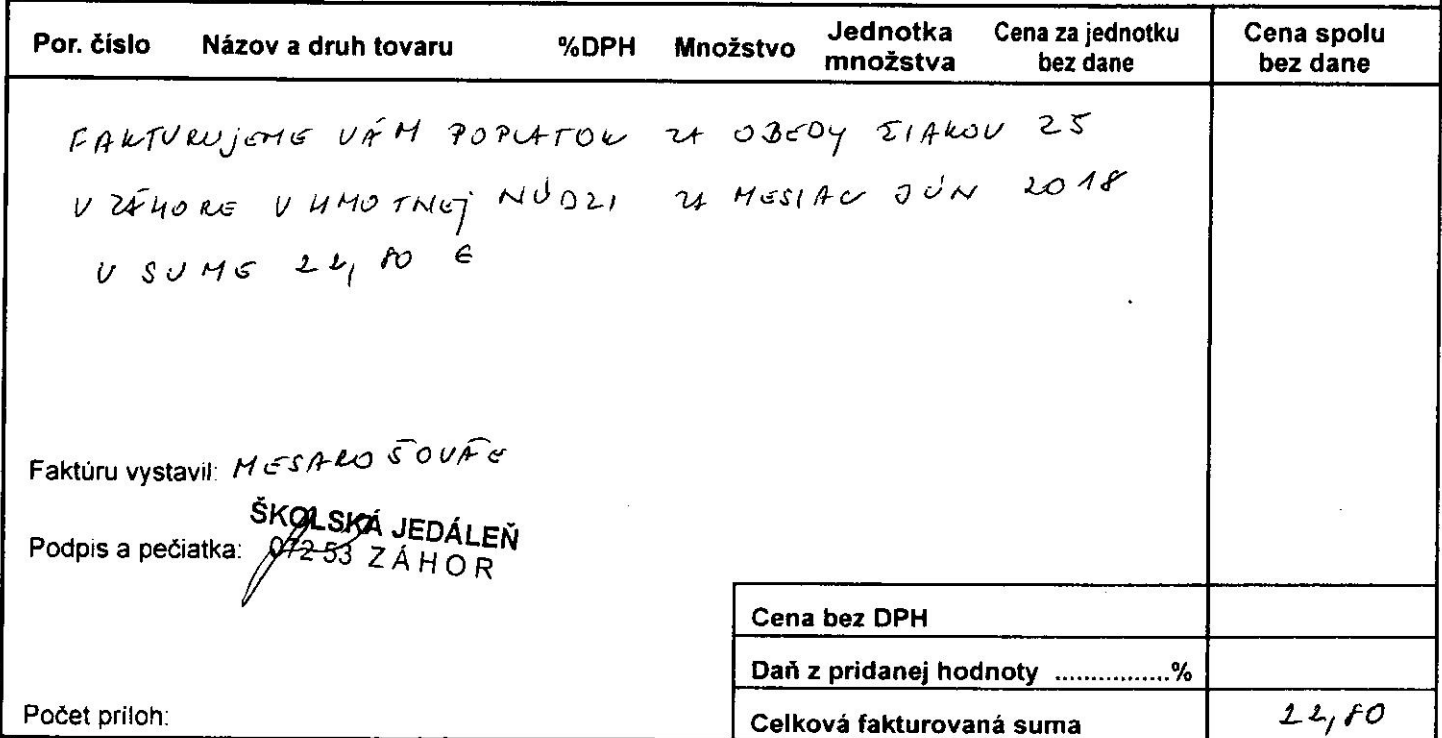 Por. číslo Názov a druh tovaru %DPH Množstvo Jednotka množstva Cena za jednotku bez dane Cena spolu bez dane
FAKTURUJEME VÁM POPLATOK ZA OBEDY ŽIAKOV ZŠ
V ZÁHORE V HMOTNEJ NÚDZI ZA MESIAC JÚN 2018
V SUME 22,80 €
Faktúru vystavil: MESAROŠOVÁ
ŠKOLSKÁ JEDÁLEŇ
Podpis a pečiatka: 072 53 ZÁHOR
Cena bez DPH
Daň z pridanej hodnoty ................%
Počet príloh:
Celková fakturovaná suma 22,80